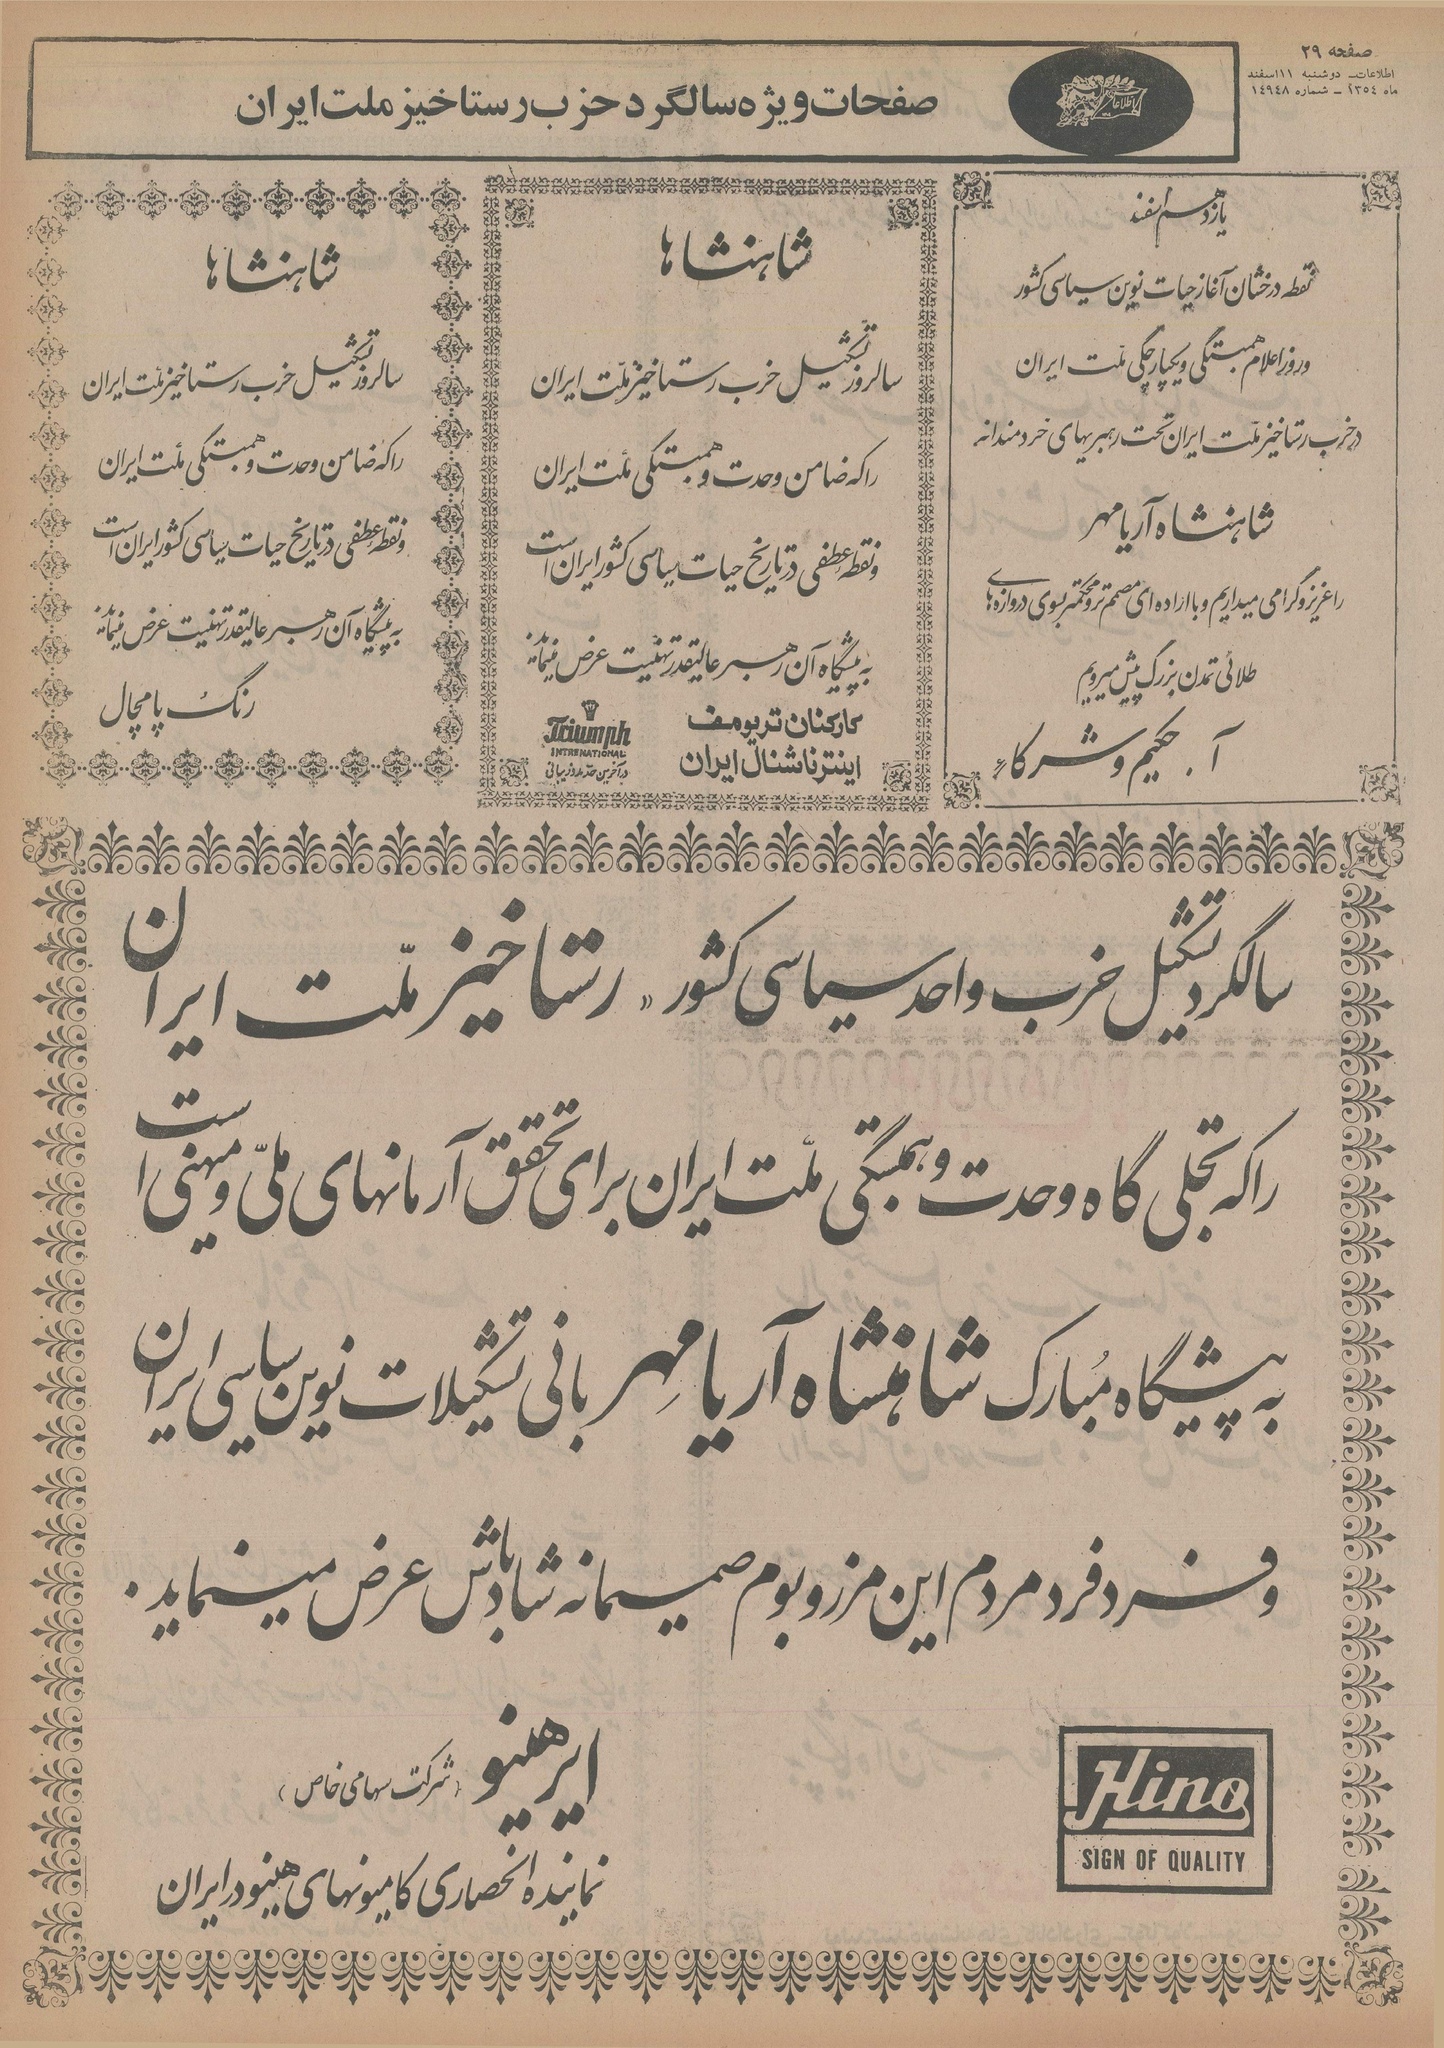 صفحه ۲۹
اطلاعات ـ دوشنبه ۱۱ اسفند
ماه ۱۳۵۴ ـ شماره ۱۴۹۴۸
صفحات ویژه سالگرد حزب رستاخیز ملت ایران
یازدهم اسفند
نقطه درخشان آغاز حیات نوین سیاسی کشور
و روز اعلام همبستگی و یکپارچگی ملّت ایران
در حزب رستاخیز ملّت ایران تحت رهبریهای خردمندانه
شاهنشاه آریامهر
را عزیز و گرامی میداریم و با اراده ای مصمم تر و محکمتر بسوی دروازه‌های
طلائی تمدن بزرگ پیش میرویم
آ. حکیم و شرکاء
شاهنشاها
سالروز تشکیل حزب رستاخیز ملّت ایران
را که ضامن وحدت و همبستگی ملّت ایران
و نقطه عطفی در تاریخ حیات سیاسی کشور ایران است
به پیشگاه آن رهبر عالیقدر تهنیت عرض مینماید.
کارکنان تریومف
اینترناشنال ایران
Triumph
INTERNATIONAL
شاهنشاها
سالروز تشکیل حزب رستاخیز ملّت ایران
را که ضامن وحدت و همبستگی ملّت ایران
و نقطه عطفی در تاریخ حیات سیاسی کشور ایران است
به پیشگاه آن رهبر عالیقدر تهنیت عرض مینماید.
رنگ پامچال
سالگرد تشکیل حزب واحد سیاسی کشور «رستاخیز ملّت ایران
را که تجلی گاه وحدت و همبستگی ملّت ایران برای تحقق آرمانهای ملّی و میهنی است
به پیشگاه مُبارک شاهنشاه آریامهر بانی تشکیلات نوین سیاسی ایران
و فرد فرد مردم این مرز و بوم صمیمانه شادباش عرض مینماید.
ایرهینو (شرکت سهامی خاص)
نماینده انحصاری کامیونهای هینو در ایران
Hino
SIGN OF QUALITY